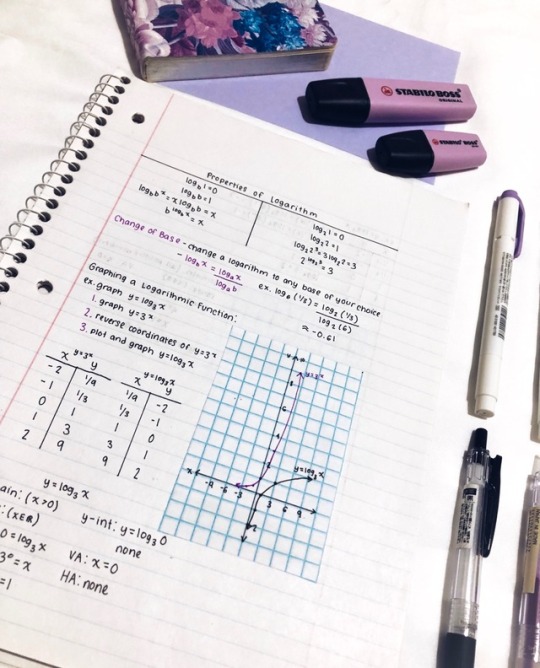 STABILO BOSS
ORIGINAL
STABILO BOSS
Properties of Logarithm
log_b 1 = 0
log_b b = 1
log_b b^x = x log_b b = x
b^log_b x = x
log_2 1 = 0
log_2 2 = 1
log_2 2^3 = 3 log_2 2 = 3
2^log_2 3 = 3
Change of Base - change a logarithm to any base of your choice
- log_b x = log_a x / log_a b
ex. log_6 (1/3) = log_2 (1/3) / log_2 (6)
≈ -0.61
Graphing a Logarithmic Function:
ex. graph y = log_3 x
1. graph y = 3^x
2. reverse coordinates of y = 3^x
3. plot and graph y = log_3 x
y = 3^x
x y
-2 1/9
-1 1/3
0 1
1 3
2 9
y = log_3 x
x y
1/9 -2
1/3 -1
1 0
3 1
9 2
y = 3^x
y = log_3 x
x
8
6
4
2
-9 -6 -3
3 6 9
-2
y = log_3 x
ain: (x>0)
: (x∈R)
0 = log_3 x
3^0 = x
=1
y-int: y = log_3 0
none
VA: x = 0
HA: none